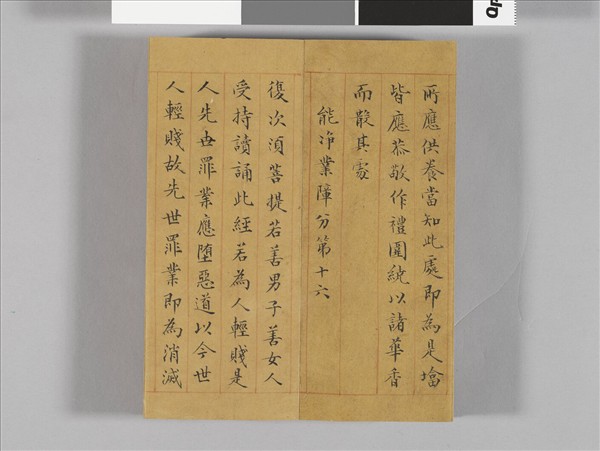 所應供養當知此處即為是塔
皆應恭敬作禮圍繞以諸華香
而散其處
能淨業障分第十六
復次須菩提若善男子善女人
受持讀誦此經若為人輕賤是
人先世罪業應堕惡道以今世
人輕賤故先世罪業即為消滅